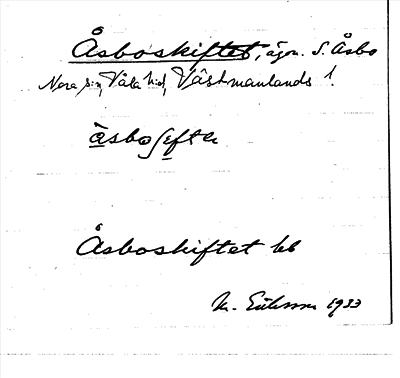 Åsboskiftet, ägon. S. Åsbo
Nora sn, Våla hd, Västmanlands l.
åsboʃefte
Åsboskiftet bb
M. Eriksson 1933